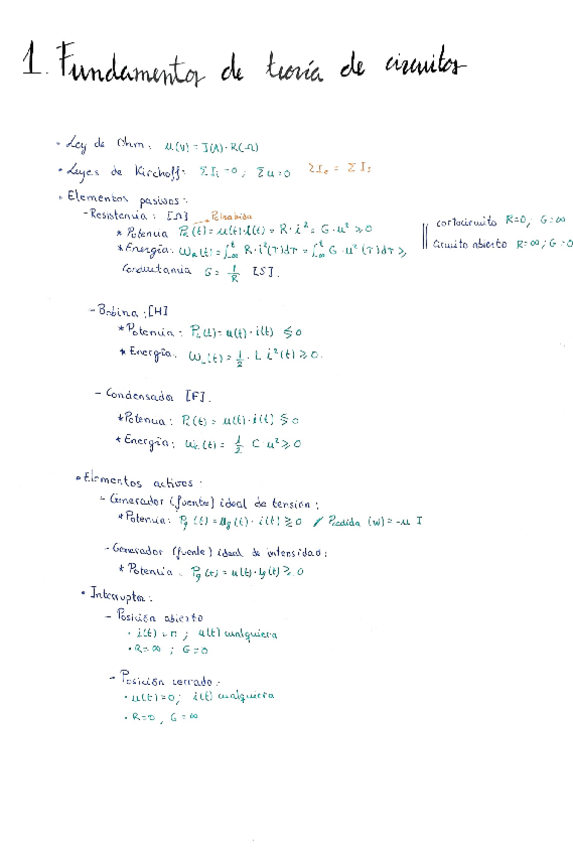 1. Fundamentos de teoría de circuitos
• Ley de Ohm: u(V) = I(A)·R(Ω)
• Leyes de Kirchoff: ΣIᵢ=0; Σu=0 ΣIₑ = ΣIₛ
• Elementos pasivos:
- Resistencia: [Ω]
* Potencia P_R(t) = u(t)·i(t) = R·i² = G·u² ≥ 0
cortocircuito R=0, G=∞
* Energía: W_R(t) = ∫_{-∞}^t R·i²(τ)dτ = ∫_{-∞}^t G·u²(τ)dτ ≥
Circuito abierto R=∞; G=0
Conductancia G = 1/R [S].
- Bobina: [H]
* Potencia: P_L(t) = u(t)·i(t) ≶ 0
* Energía: W_L(t) = 1/2 · L i²(t) ≥ 0.
- Condensador [F].
* Potencia: P_c(t) = u(t)·i(t) ≶ 0
* Energía: W_c(t) = 1/2 C u² ≥ 0
• Elementos activos:
- Generador (fuente) ideal de tensión:
* Potencia: P_g(t) = u_g(t)·i(t) ≷ 0 / (w) = -u I
- Generador (fuente) ideal de intensidad:
* Potencia: P_g(t) = u(t)·i_g(t) ≥ 0
• Interruptor:
- Posición abierto
• u(t) cualquiera
• R=∞; G=0
- Posición cerrado:
• u(t)=0; i(t) cualquiera
• R=0, G=∞